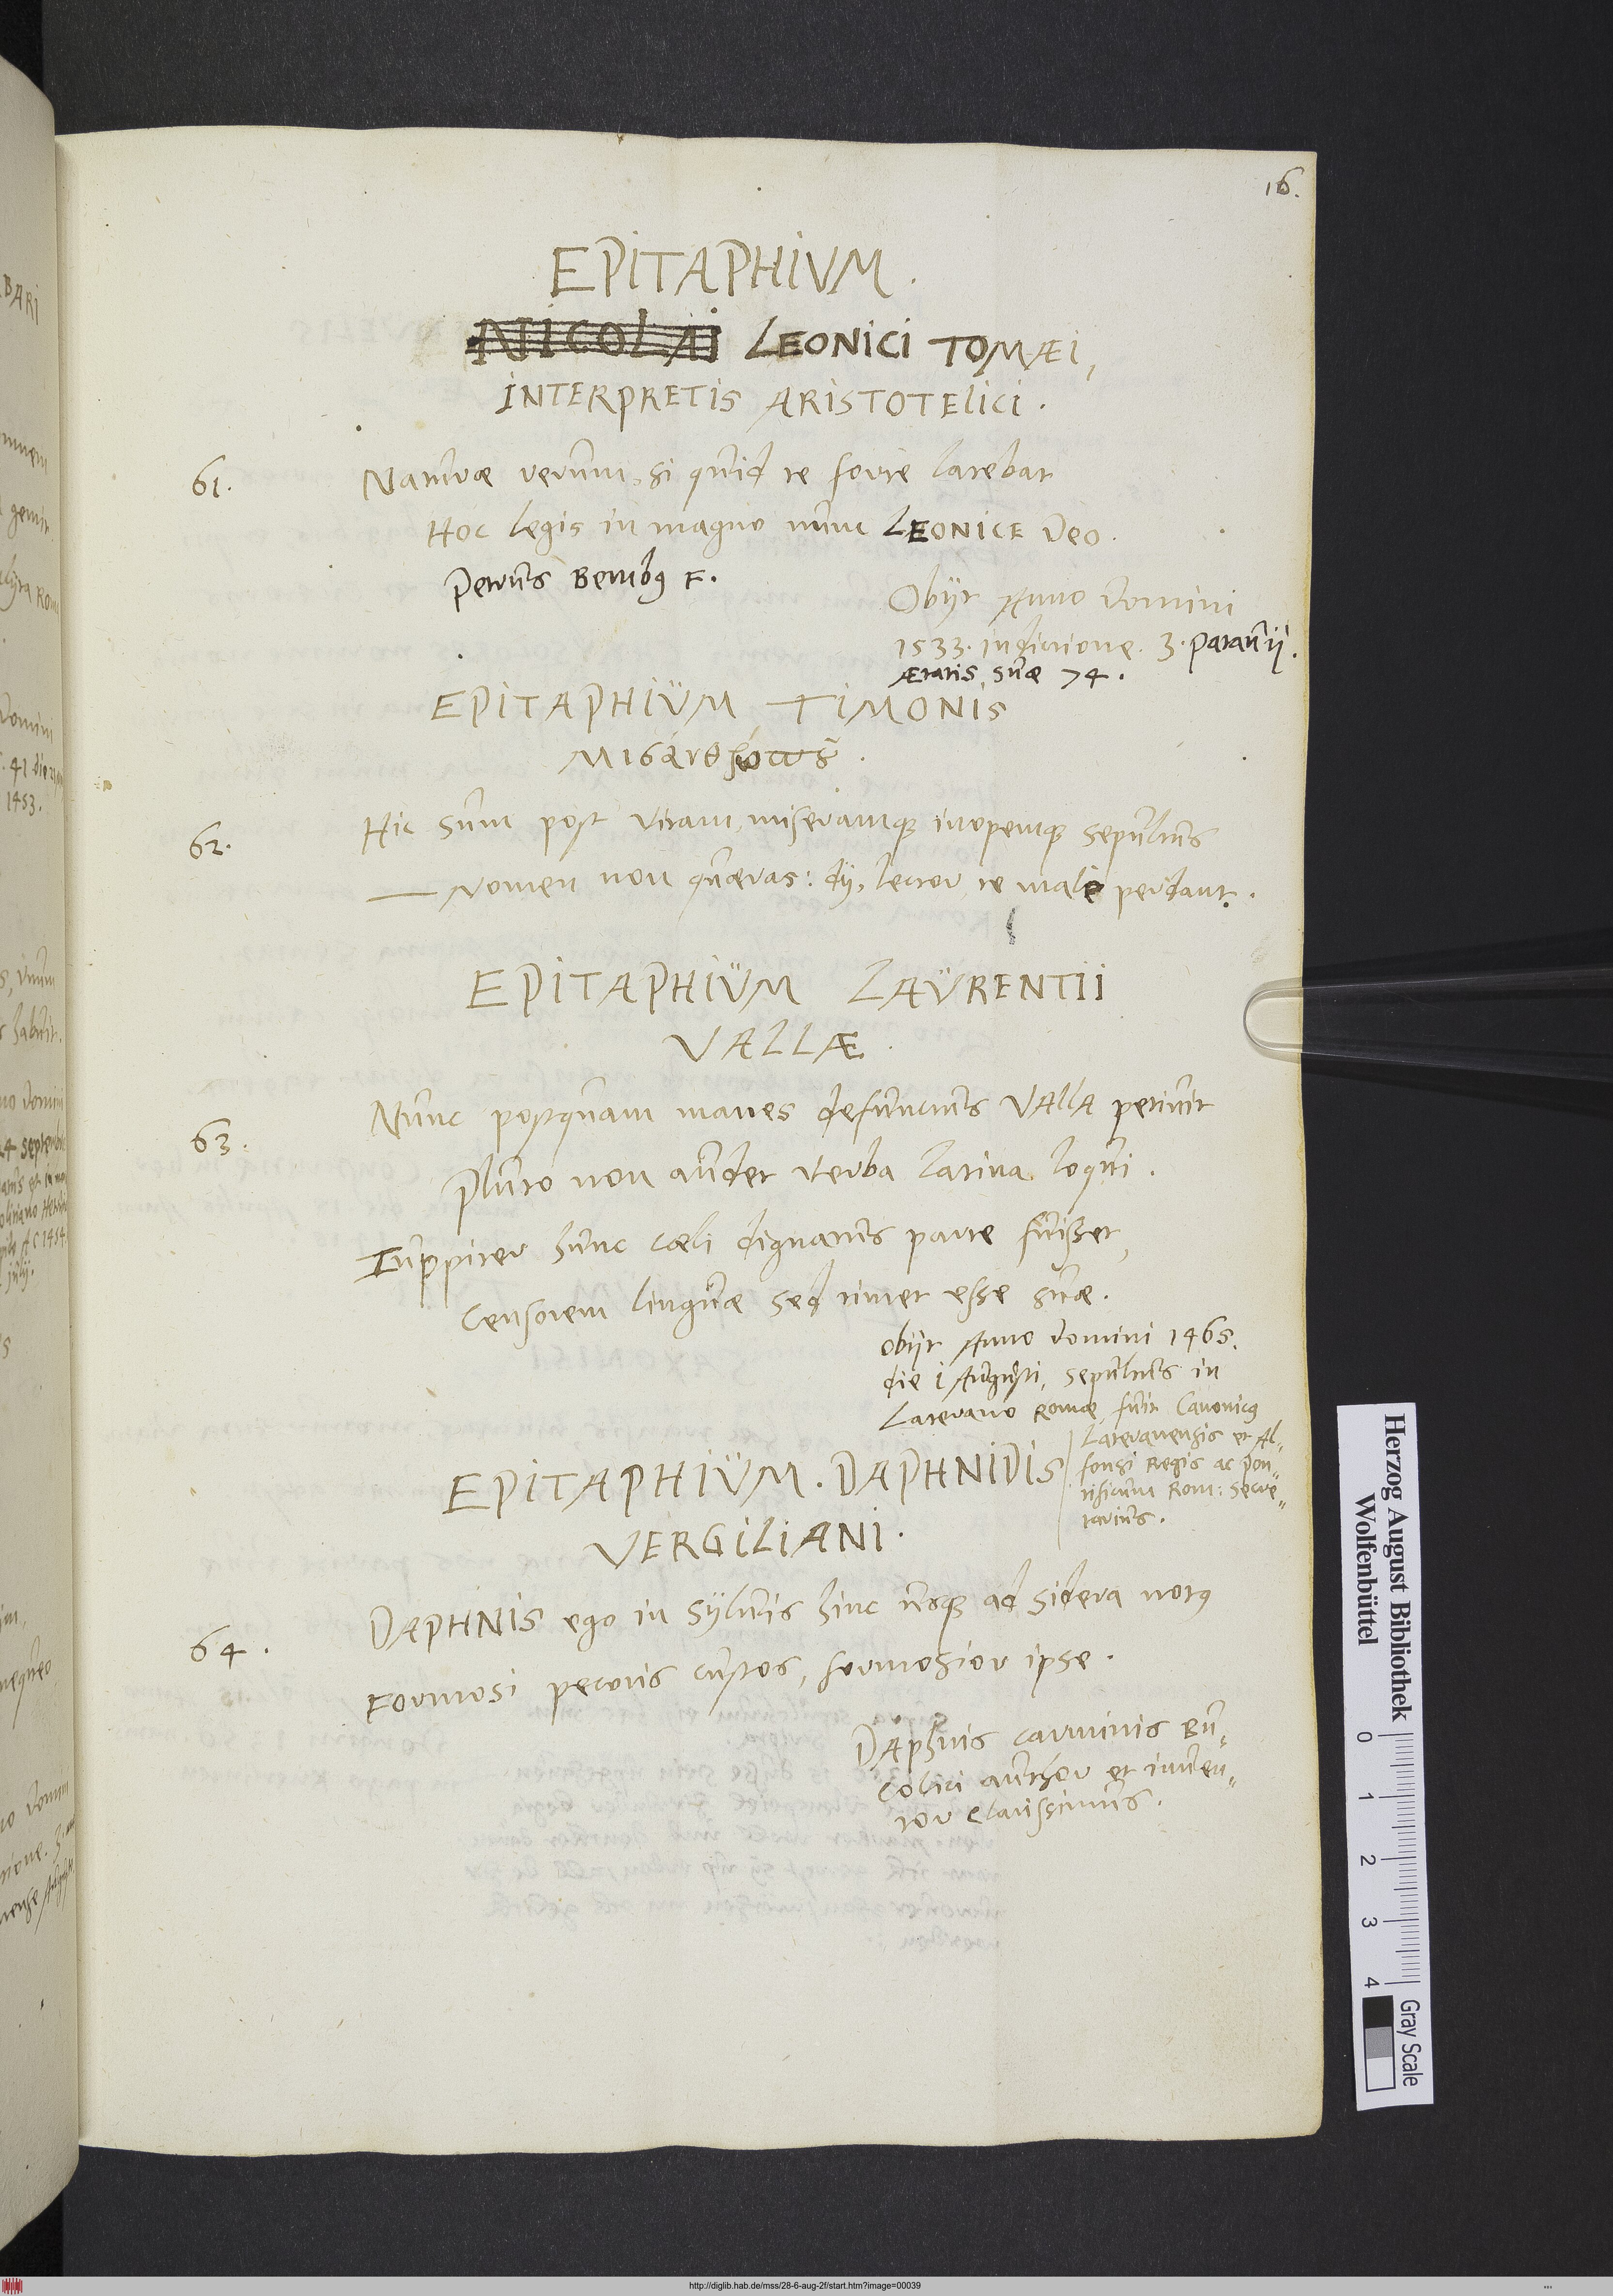 16.
EPITAPHIVM.
NICOLAI LEONICI TOMÆI,
INTERPRETIS ARISTOTELICI.
61. Naturæ rerum, si quid te forte latebat
Hoc legis in magno nunc LEONICE Deo.
Petrus Bembus F.
Obijt Anno Domini
1533. indictione. 3. Patauij.
Ætatis suæ 74.
EPITAPHIÜM TIMONIS
62. Hic sum post vitam, miseramque inopemque sepultus
Nomen non quæras: dij, lector, te male perdant.
EPITAPHIÜM LAÜRENTII
VALLÆ.
63. Nunc postquam manes defunctus VALLA petiuit
Pluto non audet verba latina loqui.
Iuppiter hunc cæli dignatus parte fuißet,
Censorem linguæ sed timet esse suæ.
obijt Anno Domini 1465.
die i Augusti, sepultus in
Laterano Romæ, fuit Canonicus
Lateranensis et Al=
fonsi Regis ac Pon=
tificum Rom: Secre=
tarius.
EPITAPHIÜM. DAPHNIDIS
VERGILIANI.
64. DAPHNIS ego in syluis hinc usque ad sidera notus
Formosi pecoris custos, formosior ipse.
DAphnis carminis Bu=
colici author et inuen=
tor clarissimus.
BARI
gemit
Domini
1453.
Herzog August Bibliothek
Wolfenbüttel
0 1 2 3 4
Gray Scale
http://diglib.hab.de/mss/28-6-aug-2f/start.htm?image=00039